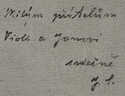 Milým přátelům
Viole a Janovi
srdečně
J. S.